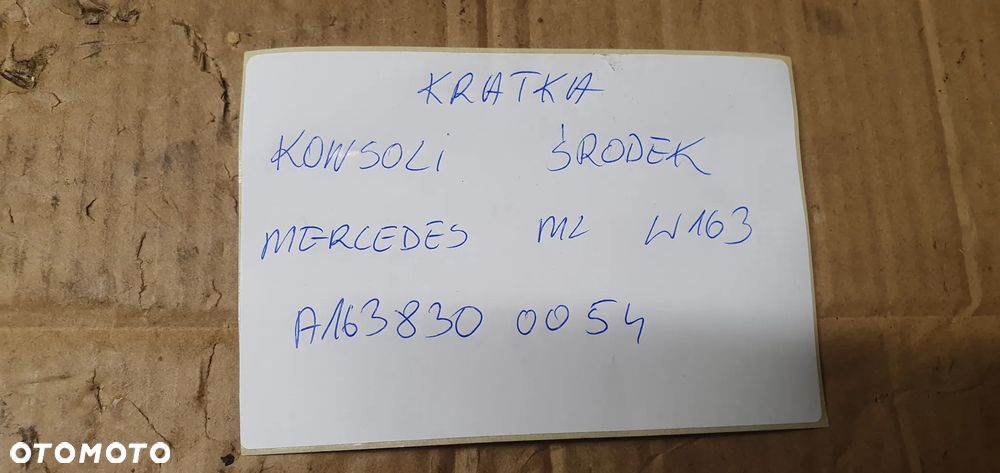 KRATKA
KONSOLI ŚRODEK
MERCEDES ML W163
A163830 0054
OTOMOTO